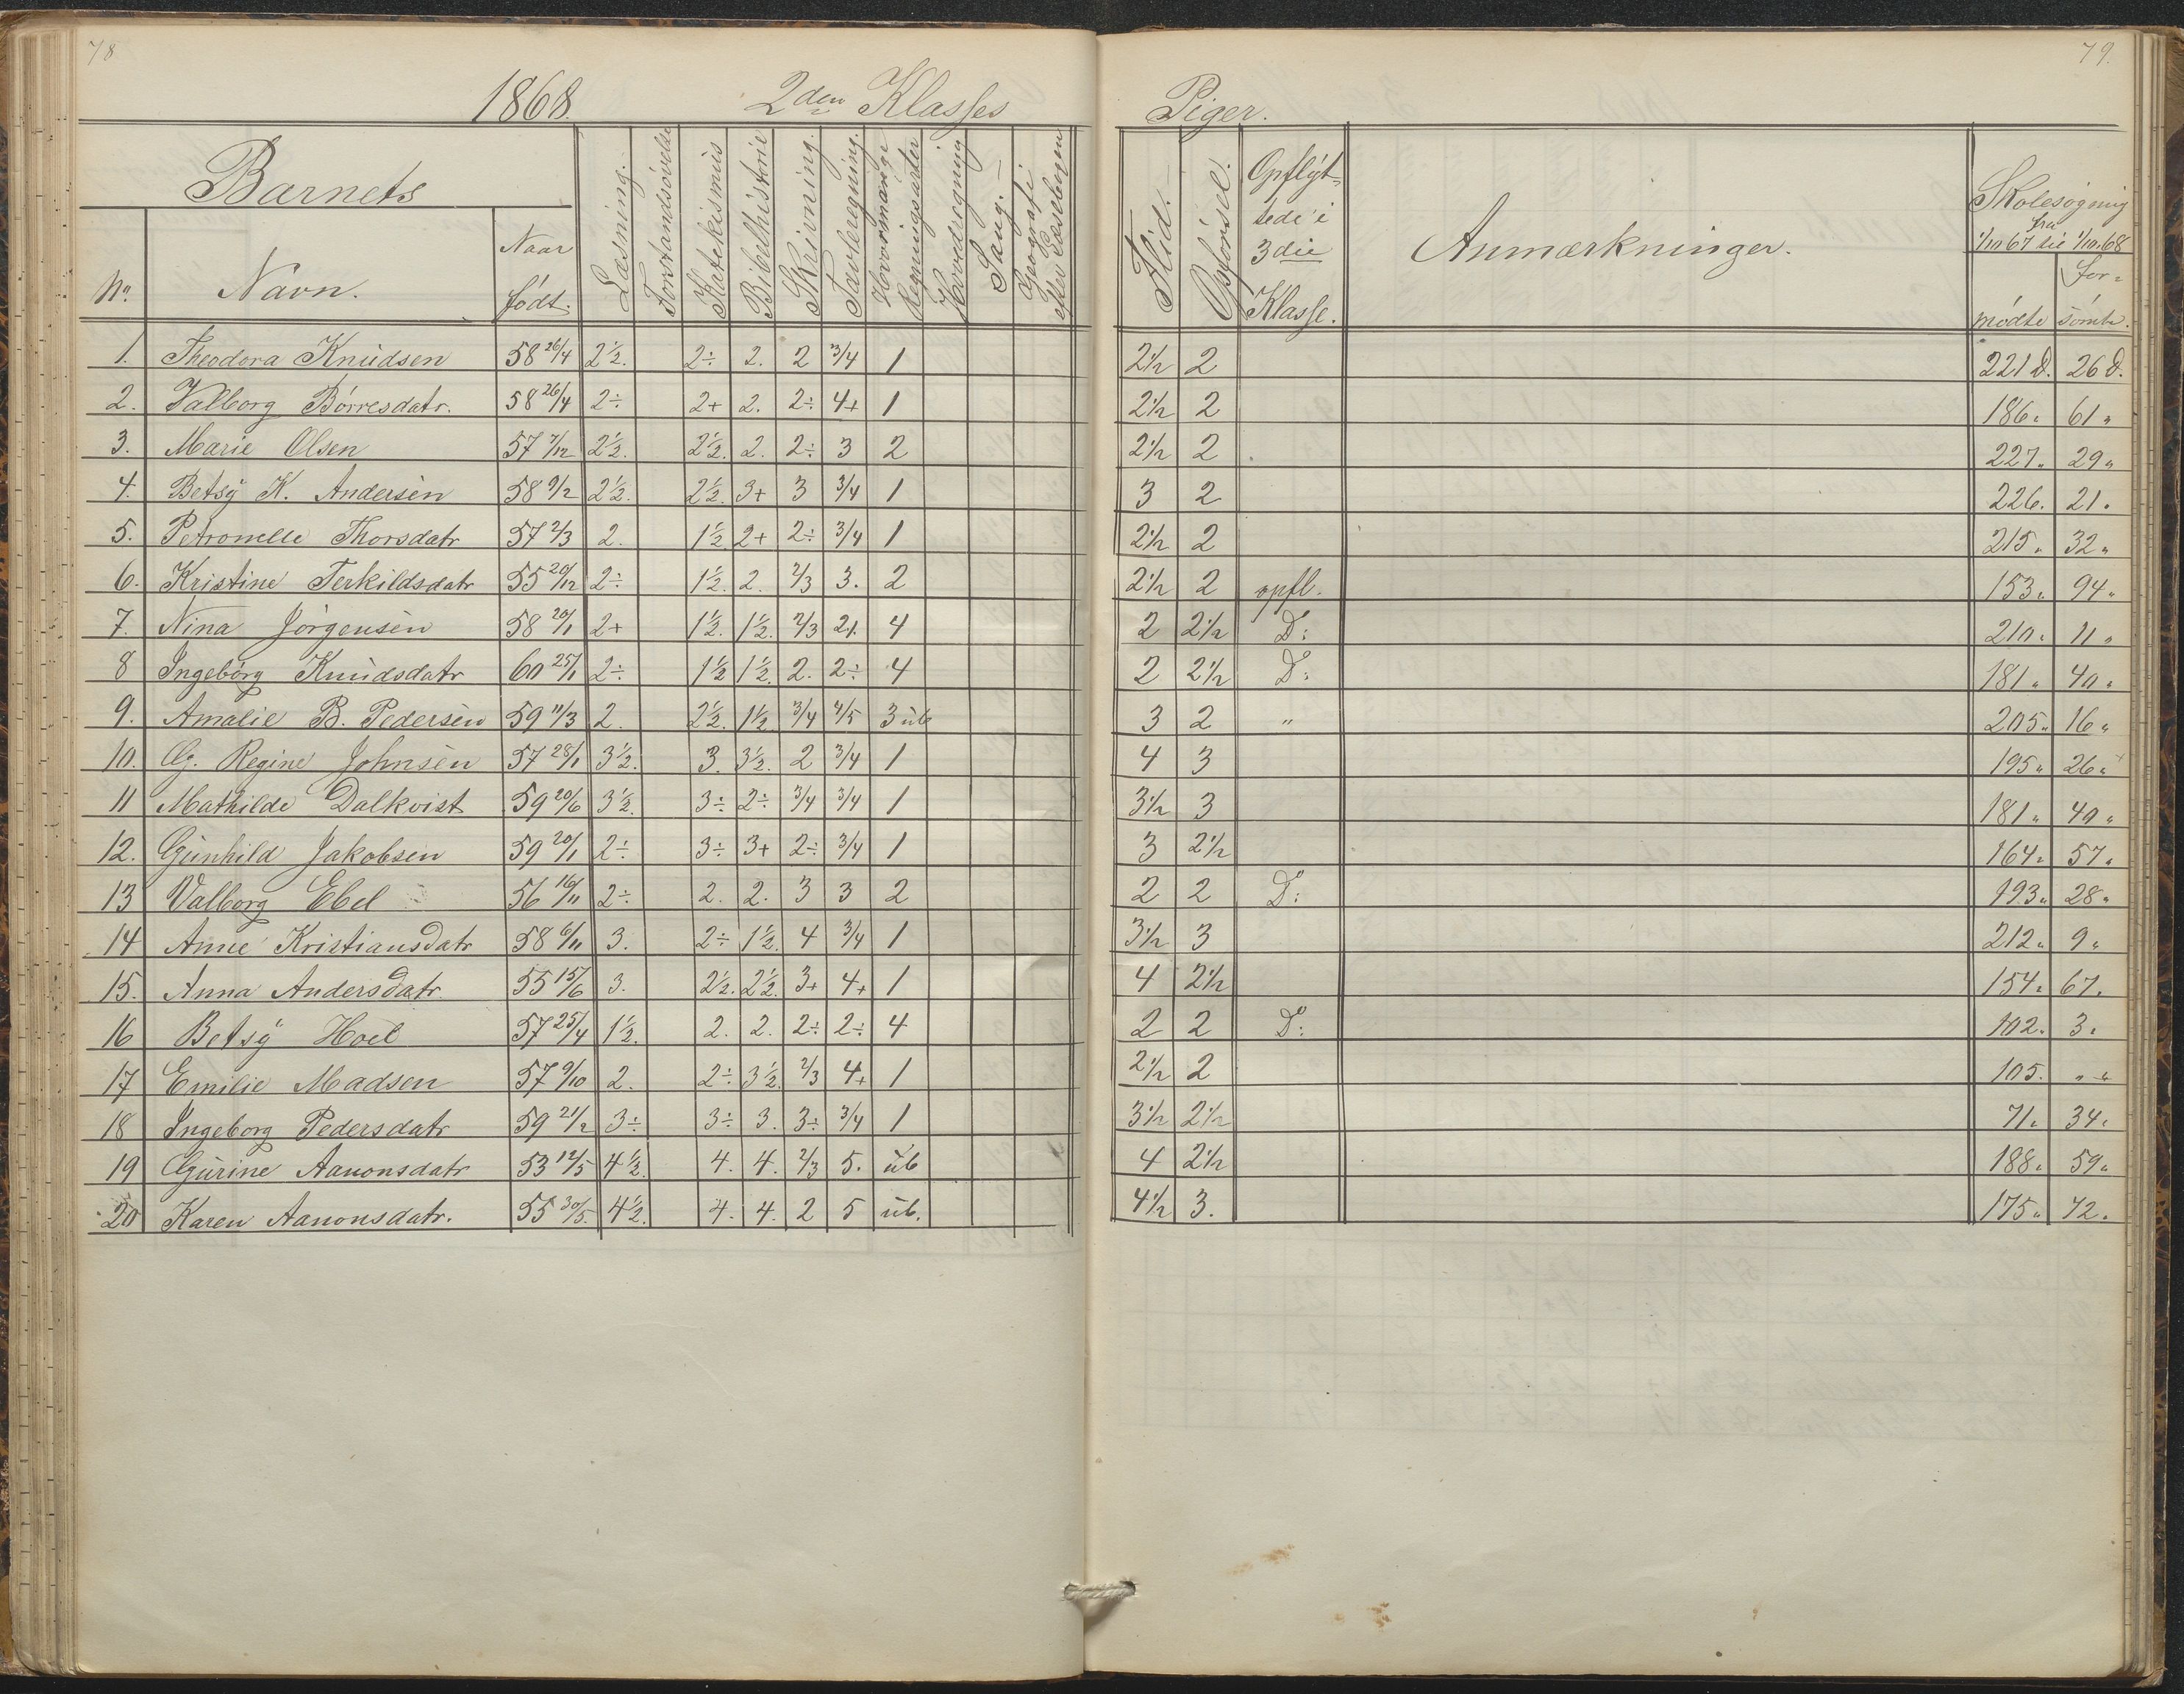 78
79.
1868. 2den Klasses Piger.
Barnets
No. Navn. Naar født. Læsning. Forstandsøvelse Katekismus Bibelhistorie Skrivning. Tavleregning. Hvormange Regningsarter Hovedregning Sang. Geografi efter Læsebogen Flid. Opførsel. Opflyttede i 3die Klasse. Anmærkninger. Skolesøgning fra 1/10 67 til 1/10 68 mødte forsømte.
1. Theodora Knudsen 58 26/4 2½. 2÷ 2. 2 3/4 1 2½ 2 221 D. 26 D.
2. Valborg Børresdatr. 58 26/4 2÷ 2+ 2. 2÷ 4+ 1 2½ 2 186 " 61 "
3. Marie Olsen 57 7/12 2½. 2½. 2. 2÷ 3 2 2½ 2 227 " 29 "
4. Betsy K. Andersen 58 9/2 2½. 2½. 3+ 3 3/4 1 3 2 226. 21.
5. Petronelle Thorsdatr 57 2/3 2. 1½ 2+ 2÷ 3/4 1 2½ 2 215 " 32 "
6. Kristine Terkildsdatr 55 20/12 2÷ 1½. 2. 2/3 3. 2 2½ 2 opfl. 153 " 94 "
7. Nina Jørgensen 58 20/1 2+ 1½. 1½. 2/3 4 2 2½ Do: 210 " 11 "
8 Ingeborg Knudsdatr 60 25/1 2÷ 1½ 1½. 2. 2÷ 4 2 2½ Do: 181 " 40 "
9. Amalie B. Pedersen 59 11/3 2. 2½. 1½ 3/4 4/5 3 ub 3 2 " 205 " 16 "
10. Regine Johnsen 57 28/1 3½. 3. 3½. 2 3/4 1 4 3 195 " 26 "
11 Mathilde Dalkvist 59 20/6 3½. 3÷ 2÷ 3/4 3/4 1 3½ 3 181 " 40 "
12. Gunhild Jakobsen 59 20/1 2÷ 3÷ 3+ 2÷ 3/4 1 3 2½ 164 " 57 "
13 Valborg Ebel 56 16/11 2÷ 2. 2. 3 3 2 2 2 Do: 193 " 28 "
14 Anne Kristiansdatr 58 6/11 3. 2÷ 1½. 4 3/4 1 3½ 3 212 " 9 "
15. Anna Andersdatr. 55 15/6 3. 2½. 2½. 3+ 4+ 1 4 2½ 154 " 67.
16 Betsy Hoel 57 25/4 1½. 2. 2. 2÷ 2÷ 4 2 2 Do: 102. 3 "
17 Emilie Madsen 57 9/10 2. 2÷ 3½. 2/3 4+ 1 2½ 2 105. " "
18 Ingeborg Pedersdatr 59 21/2 3÷ 3÷ 3. 3÷ 3/4 1 3½ 2½ 71 " 34 "
19 Gurine Aanonsdatr 53 12/5 4½. 4. 4. 2/3 5. ub 4 2½ 188 " 59 "
20 Karen Aanonsdatr. 55 30/5. 4½. 4. 4. 2 5 ub. 4½ 3. 175 " 72.